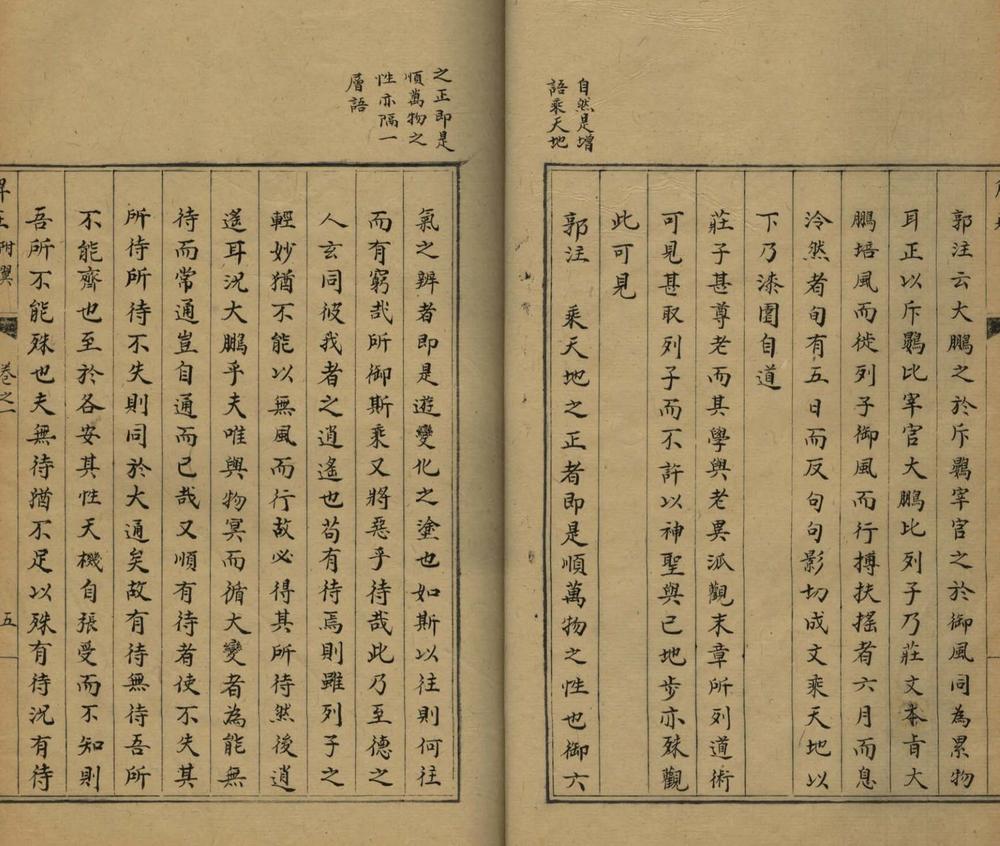 自然是增
語乘天地
郭注云大鵬之於斥鷃宰官之於御風同為累物
耳正以斥鷃比宰官大鵬比列子乃莊文本旨大
鵬培風而徙列子御風而行摶扶搖者六月而息
泠然者旬有五日而反句句影切成文乘天地以
下乃漆園自道
莊子甚尊老而其學與老異派觀末章所列道術
可見甚取列子而不許以神聖與已地步亦殊觀
此可見
郭注　乘天地之正者即是順萬物之性也御六
之正即是
順萬物之
性亦隔一
層語
氣之辨者即是遊變化之塗也如斯以往則何往
而有窮哉所御斯乘又將惡乎待哉此乃至德之
人玄同彼我者之逍遙也苟有待焉則雖列子之
輕妙猶不能以無風而行故必得其所待然後逍
遙耳況大鵬乎夫唯與物冥而循大變者為能無
待而常通豈自通而已哉又順有待者使不失其
所待所待不失則同於大通矣故有待無待吾所
不能齊也至於各安其性天機自張受而不知則
吾所不能殊也夫無待猶不足以殊有待況有待
附翼
卷之一
五